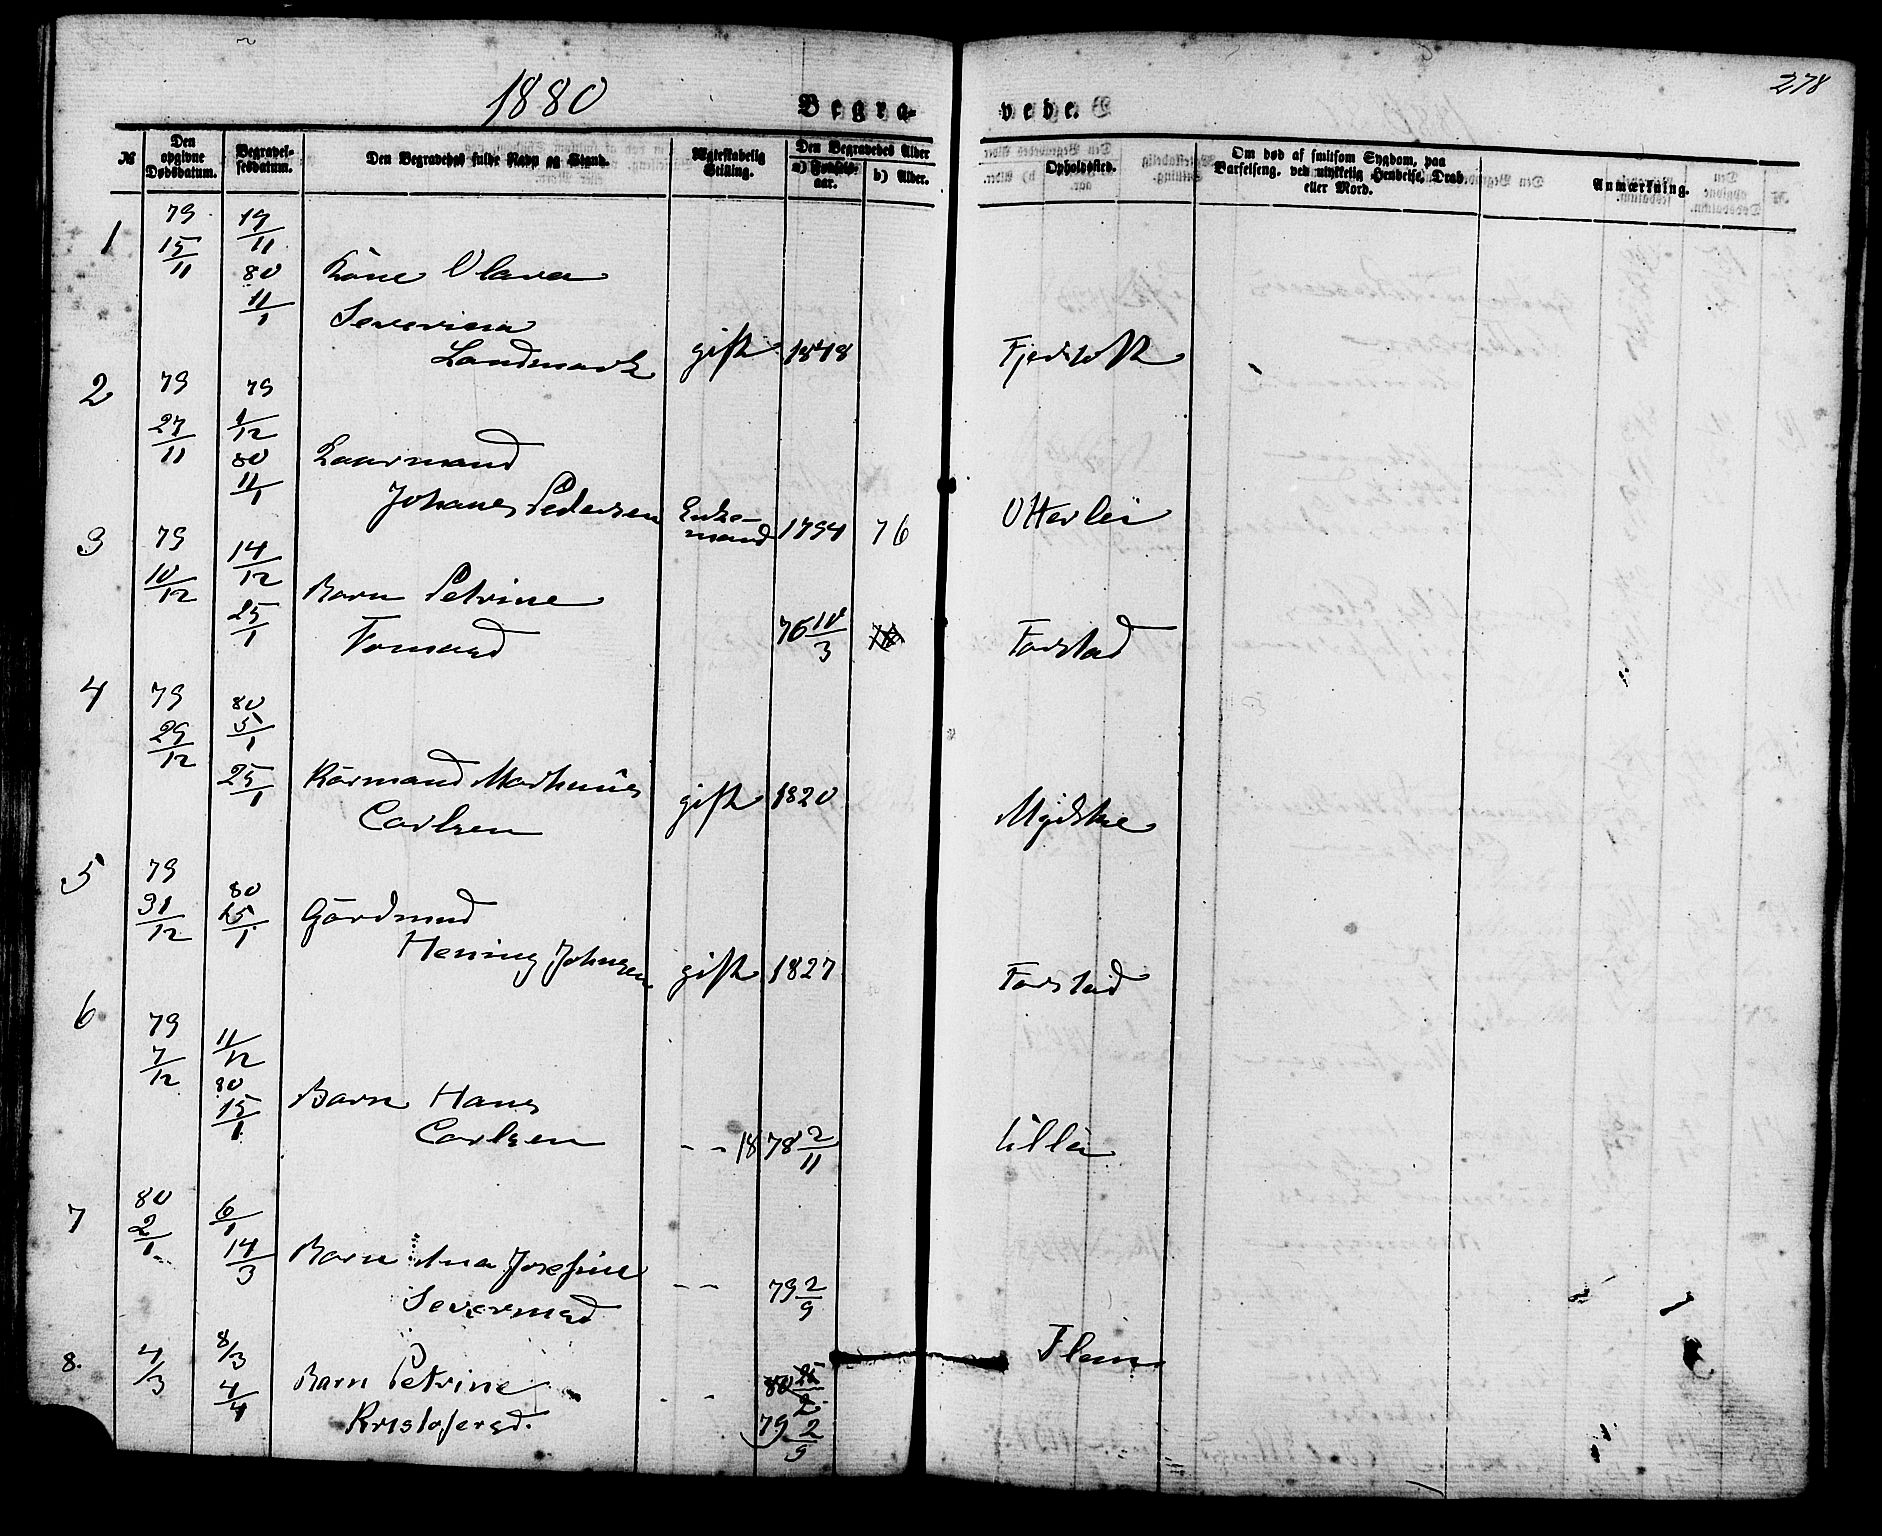 278
1880
Begra-
vede.
№
Den opgivne Dødsdatum.
Begravel-sesdatum.
Den Begravedes fulde Navn og Stand.
Ægteskabelig Stilling.
Den Begravedes Alder
a) Fødsels-aar.
b) Alder.
Opholdssted.
Om død af smitsom Sygdom, paa Barselseng, ved ulykkelig Hendelse, Drab eller Mord.
Anmærkning.
1
79 15/11
19/11 80 11/1
Kone Olava
Severina
Landmark gift 1848 Fjørtoft
2
79 27/11
79 1/12 80 11/1
Kaarmand
Johanes Pedersen Enke-mand 1794 76 Otterlei
3
79 10/12
14/12 25/1
Barn Petrine
Tomasd 76 10/3 Farstad
4
79 29/12
80 5/1 25/1
Kårmand Marthinus
Carlsen gift 1820
5
79 31/12
80 25/1
Gårdmand
Hening Johnsen gift 1827 Farstad
6
79 7/12
11/12 80 15/1
Barn Hans
Carlsen - - 1878 2/11 Ulla
7
80 2/1
6/1 14/3
Barn Ana Josefine
Seversd - - 79 2/9
Flem
8.
4/3
8/3 4/4
Barn Petrine
Kristofersd. - 80
79 2/9